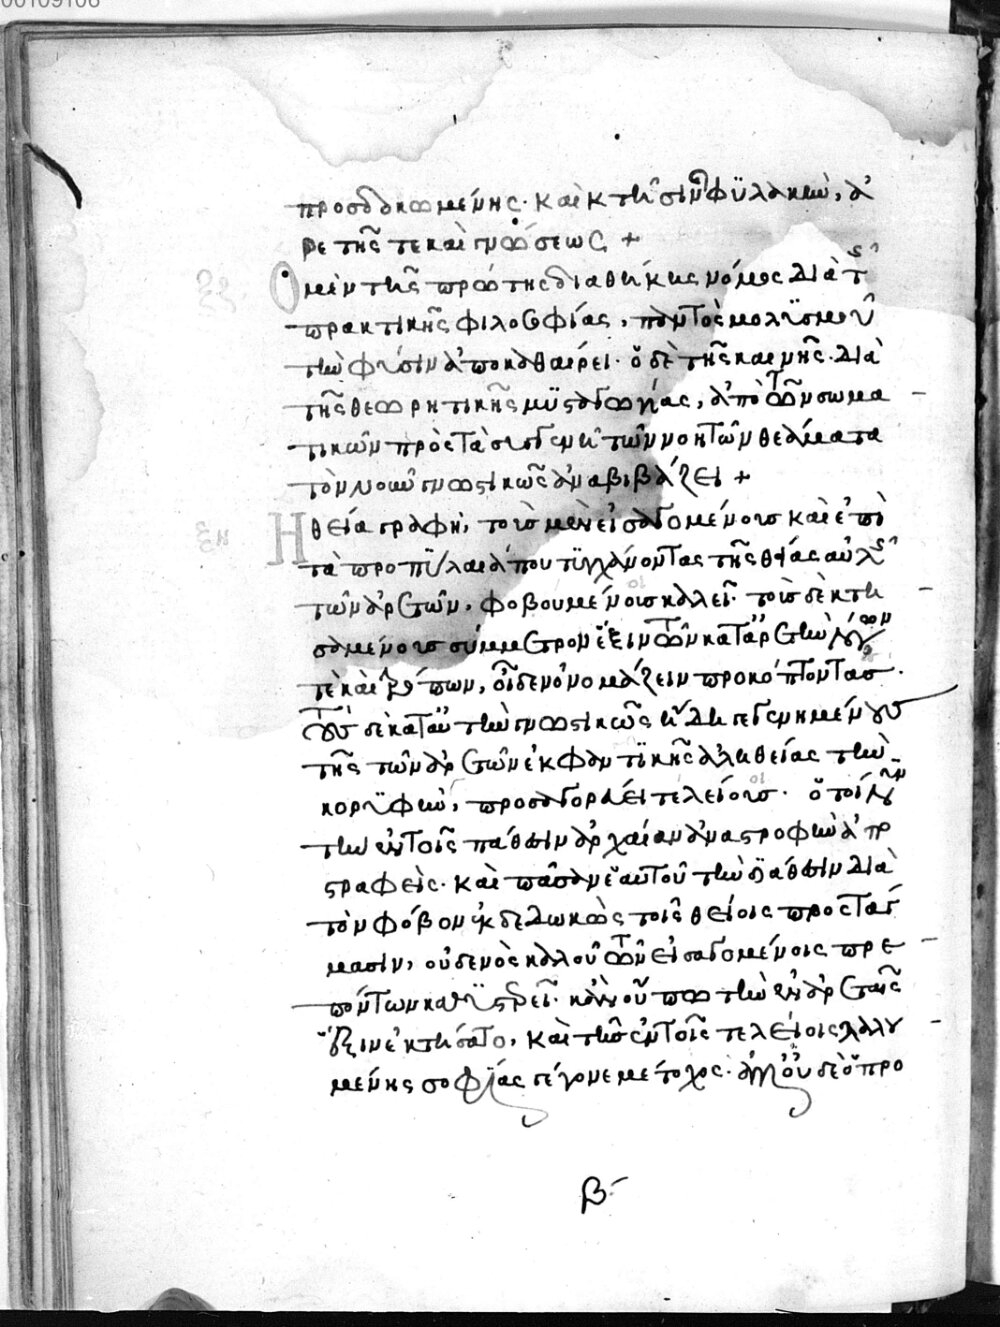 προσδοκωμένης· καὶ κτῆσιν φυλακὴν, ἀ
ρετῆς τε καὶ γνώσεως +
Ὁ μὲν τῆς πρώτης διαθήκης νόμος διὰ τ
πρακτικῆς φιλοσοφίας, παντὸς μολυσμοῦ
τὴν φύσιν ἀποκαθαίρει· ὁ δὲ τῆς καινῆς· διὰ
τῆς θεωρητικῆς μυσταγωγίας, ἀπὸ τῶν σωμα
τικῶν πρὸς τὰ συγγενῆ τῶν νοητῶν θεάματα
τὸν νοῦν γνωστικῶς ἀναβιβάζει +
Ἡ θεία γραφὴ, τοὺς μὲν εἰσαγομένους καὶ ἐπὶ
τὰ προπύλαιά που τυγχάνοντας τῆς θείας αὐλῆς
τῶν ἀρετῶν, φοβουμένους καλεῖ· τοὺς δὲ κτη
σαμένους σύμμετρον ἕξιν τῶν κατ' ἀρετὴν λόγων
τε καὶ τρόπων, οἶδεν ὀνομάζειν προκόπτοντας·
τοὺς δὲ κατ' αὐτὴν γνωστικῶς ἤδη γεγενημένους
τῆς τῶν ἀρετῶν ἐκφαντικῆς ἀληθείας τὴν
κορυφὴν, προσαγορεύει τελείους· ὁ τοίνυν
τὴν ἐν τοῖς πάθεσιν ἀρχαίαν ἀναστροφὴν ἀπο
στραφεὶς· καὶ πᾶσαν ἑαυτοῦ τὴν διάθεσιν διὰ
τὸν φόβον ἐκδεδωκὼς τοῖς θείοις προστάγ
μασιν, οὐδενὸς καλοῦ τῶν εἰσαγομένοις πρε
πόντων καθυστερεῖ· κἂν οὔπω τὴν ἐν ἀρεταῖς
ἕξιν ἐκτήσατο, καὶ τῆς ἐν τοῖς τελείοις λαλου
μένης σοφίας γέγονε μέτοχος· ἀλλ' οὐδὲ ὁ προ
β